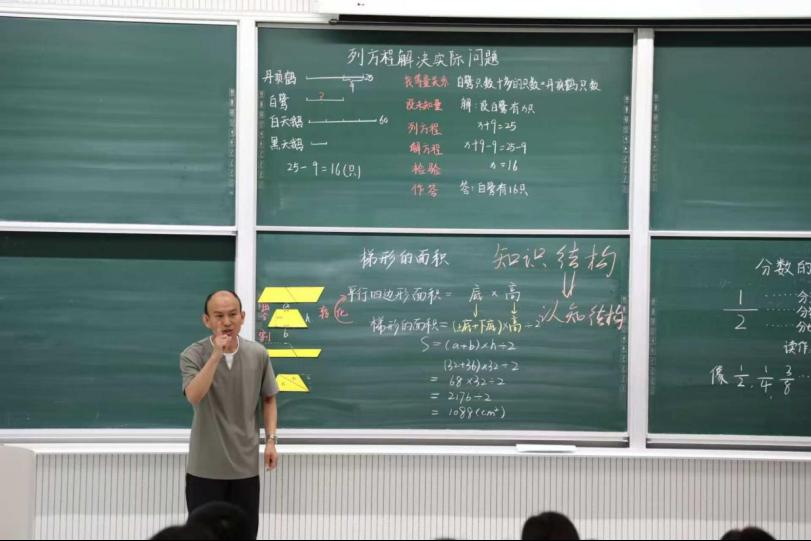 列方程解决实际问题
丹顶鹤 25
9
白鹭 ?
白天鹅 60
黑天鹅
25-9=16(只)
找等量关系 白鹭只数+多的只数=丹顶鹤只数
设未知量 解:设白鹭有x只
列方程 x+9=25
解方程 x+9-9=25-9
检验 x=16
作答 答:白鹭有16只
梯形的面积
知识结构
认知结构
转化
a
h
b
割
平行四边形面积= 底×高
梯形的面积=(上底+下底)×高÷2
S=(a+b)×h÷2
(32+36)×32÷2
= 68×32÷2
= 2176÷2
= 1088(cm²)
分数的
1
2
读作
像 1/2, 1/4, 3/8 …